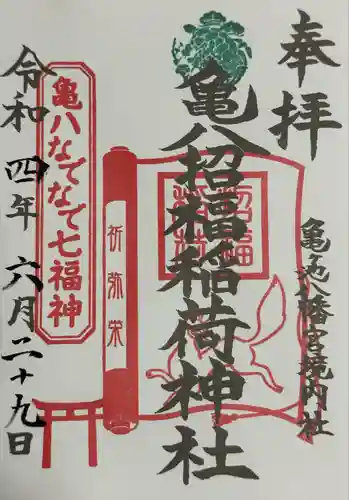 奉拝
亀八招福稲荷神社
亀ヶ池八幡宮境内社
招福稲荷
祈弥栄
亀八なでなで七福神
令和四年六月二十九日